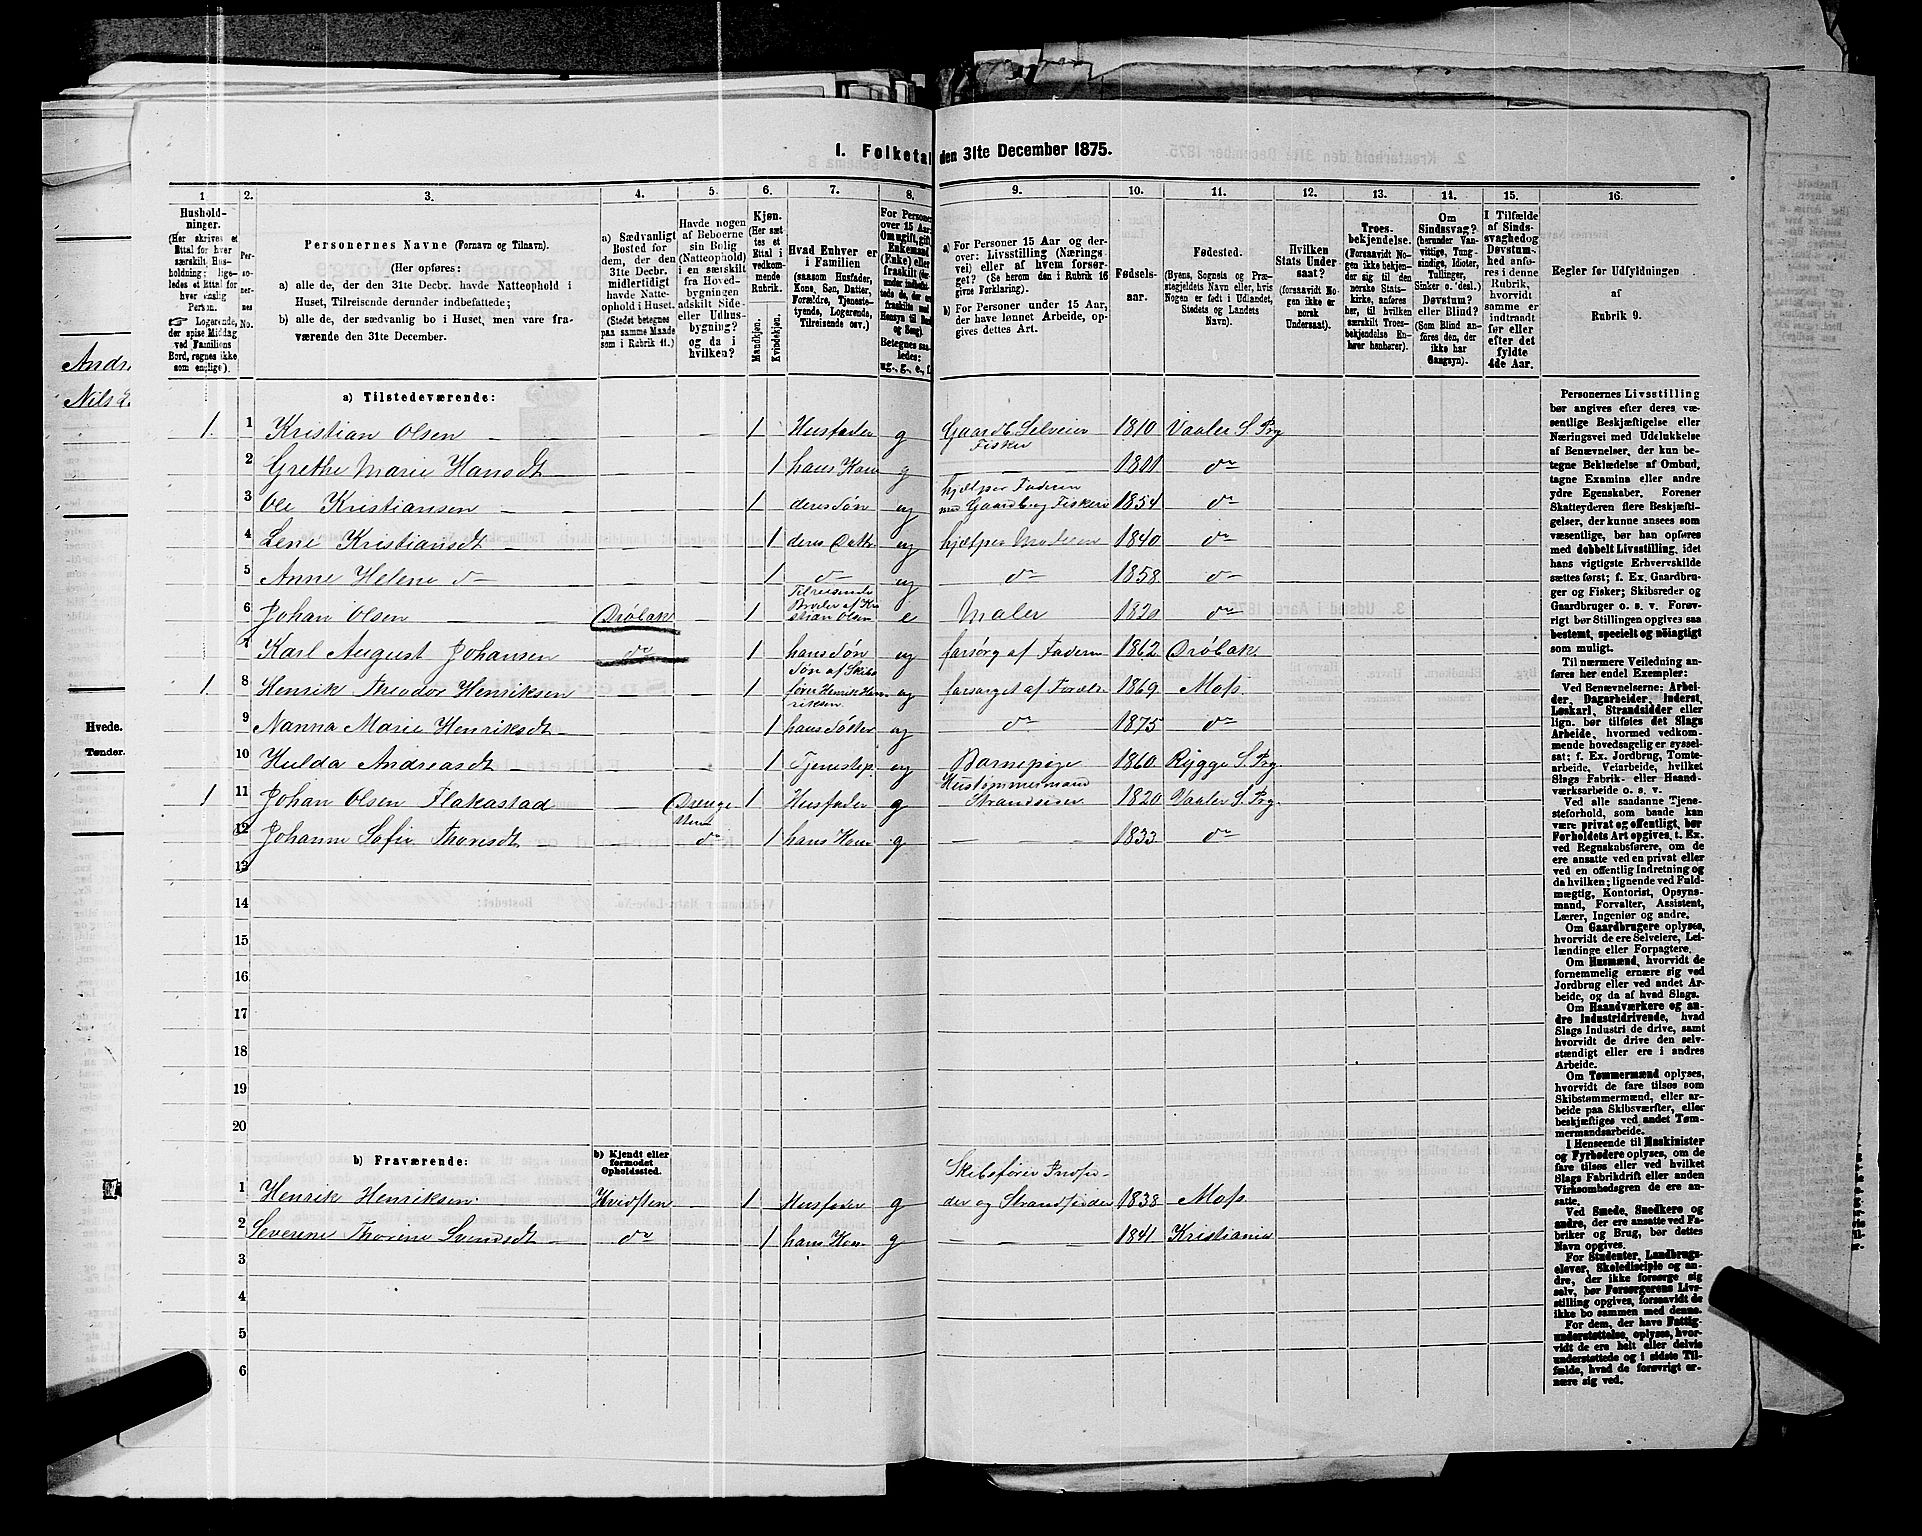 I. Folketal den 31te December 1875.
1 2. 3. 4. 5. 6. 7. 8. 9. 10. 11. 12. 13. 14. 15. 16.
Hushold-
ninger.
(Her skrives et
Ettal for hver
særskilt Hus-
holdning; lige-
ledes et Ettal for
hver enslig
Person.
☞ Logerende,
der spise Middag
ved Familiens
Bord, regnes ikke
som enslige).
Per-
so-
ner-
nes
No.
Personernes Navne (Fornavn og Tilnavn).
(Her opføres:
a) alle de, der den 31te Decbr. havde Natteophold i
Huset, Tilreisende derunder indbefattede;
b) alle de, der sædvanlig bo i Huset, men vare fra-
værende den 31te December.
a) Sædvanligt
Bosted for
dem, der den
31te Decbr.
midlertidigt
havde Natte-
ophold i Huset.
(Stedet betegnes
paa samme Maade
som i Rubrik 11.)
Havde nogen
af Beboerne
sin Bolig
(Natteophold)
i en særskilt
fra Hoved-
bygningen
adskilt Side-
eller Udhus-
bygning?
og da i
hvilken?
Kjøn.
(Her sæt-
tes et
Ettal i
vedkom-
mende
Rubrik.
Mandkjøn.
Kvindekjøn.
Hvad Enhver er
i Familien
(saasom Husfader,
Kone, Søn, Datter,
Forældre, Tjeneste-
tyende, Logerende,
Tilreisende osv.)
For Personer
over 15 Aar:
Om ugift, gift,
Enkemand
(Enke) eller
fraskilt
Betegnes saa-
ledes:
ug., g., e., f.
a) For Personer 15 Aar og der-
over: Livsstilling (Nærings-
vei) eller af hvem forsør-
get? (Se herom den i Rubrik 16
givne Forklaring).
b) For Personer under 15 Aar,
der have lønnet Arbeide, op-
gives dettes Art.
Fødsels-
aar.
Fødested.
(Byens, Sognets og Præ-
stegjeldets Navn eller, hvis
Nogen er født i Udlandet,
Stedets og Landets
Navn).
Hvilken
Stats Under-
saat?
(forsaavidt No-
gen ikke er
norsk
Undersaat).
Troes-
bekjendelse.
(Forsaavidt No-
gen ikke bekjen-
der sig til den
norske Stats-
kirke, anføres
her, til hvilken
særskilt Troes-
bekjendelse En-
hver henhører).
Om
Sindssvag?
(herunder Van-
vittige, Tung-
sindige, Idioter,
Tullinger,
Sinker o. desl.)
Døvstum?
eller Blind?
(Som Blind an-
føres den, der
ikke har
Gangsyn).
I Tilfælde
af Sinds-
svaghed og
Døvstum-
hed anfø-
res i denne
Rubrik,
hvorvidt
samme er
indtraadt
før eller
efter det
fyldte
4de Aar.
Regler for Udfyldningen
af
Rubrik 9.
a) Tilstedeværende:
1. 1 Kristian Olsen — — 1 Husfader g Gaardb. Selveier Fisker 1810 Vaaler S. Prg
2 Grethe Marie Hansdt — — 1 hans Kone g — 1801 do
3 Ole Kristiansen — — 1 deres Søn ug hjælper Faderen med Gaardb. og Fiskeri 1854 do
4 Lene Kristiansdt — — 1 deres Dattr ug hjælper Moderen 1840 do
5 Anne Helene do — — 1 do ug do 1858 do
6 Johan Olsen — Drøbak — 1 Tilreisende Broder af Kristian Olsen e Maler 1820 do
7 Karl August Johansen do 1 hans Søn ug forsørg af Faderen 1862 Drøbak
1 8 Henrik Theodor Henriksen — — 1 Søn af Skibsfører Henrik Henriksen ug forsørget af Foræld 1869 Moss
9 Nanna Marie Henriksdt — — 1 hans Datter ug do 1875 do
10 Hulda Andreasdt — — 1 Tjenestep. ug Barnepige 1860 Rygge S. Prg
1 11 Johan Olsen Flakastad — Drengestuen 1 Husfader g Hustømmermand Strandsidder 1820 Vaaler S. Prg.
12 Johanne Sofie Thoresdt — do 1 hans Kone g — 1833 do
13
14
15
16
17
18
19
20
b) Fraværende:
b) Kjendt eller
formodet
Opholdssted.
1 Henrik Henriksen. Hvidsten — 1 Husfader g Skibsfører Indsidder og Strandsidder 1838 Moss
2 Severine Thorine Svendsdt — do 1 hans Kone g — 1841 Kristiania
3
4
5
6
Personernes Livsstilling
bør angives efter deres væ-
sentlige Beskjæftigelse eller
Næringsvei med Udelukkelse
af Benævnelser, der kun be-
tegne Beklædelse af Ombud,
tagne Examina eller andre
ydre Egenskaber. Forener
Skatteyderen flere Beskjæfti-
gelser, der kunne ansees som
væsentlige, bør han opføres
med dobbelt Livsstilling, idet
hans vigtigste Erhvervskilde
sættes først; f. Ex. Gaardbru-
ger og Fisker; Skibsreder og
Gaardbruger o. s. v. Forøv-
rigt bør Stillingen opgives saa
bestemt, specielt og nøiagtigt
som muligt.
Til nærmere Veiledning an-
føres her endel Exempler:
Ved Benævnelserne: Arbei-
der, Dagarbeider, Inderst,
Løskarl, Strandsidder eller
lign. bør tilføies det Slags
Arbeide, hvormed vedkom-
mende hovedsagelig er syssel-
sat; f. Ex. Jordbrug, Tomte-
arbeide, Veiarbeide, hvilket
Slags Fabrik- eller Haand-
værksarbeide o. s. v.
Ved alle saadanne Tjene-
steforhold, som baade kan
være privat og offentligt, bør
Forholdets Art opgives, t. Ex.
ved Regnskabsførere, om de
ere ansatte ved en privat eller
ved en offentlig Indretning og
da hvilken; lignende ved Fuld-
mægtig, Kontorist, Opsyns-
mand, Forvalter, Assistent,
Lærer, Ingeniør og andre.
Om Gaardbrugere oplyses,
hvorvidt de ere Selveiere, Lei-
lændinge eller Forpagtere.
Om Husmænd, hvorvidt de
fornemmelig ernære sig ved
Jordbrug eller ved andet Ar-
beide, og da af hvad Slags.
Om Haandværkere og an-
dre Industridrivende, hvad
Slags Industri de drive, samt
hvorvidt de drive den selv-
stændigt eller ere i andres
Arbeide.
Om Tømmermænd oplyses,
hvorvidt de fare tilsøs som
Skibstømmermænd, eller ar-
beide paa Skibsværfter, eller
beskjæftiges ved andet Tøm-
mermandsarbeide.
I Henseende til Maskinister
og Fyrbødere oplyses, om de
fare tilsøs eller ved hvilket
Slags Fabrikdrift eller anden
Virksomhedsgren de ere an-
satte.
Ved Smede, Snedkere og
andre, der ere ansatte ved Fa-
briker og Brug, bør dettes
Navn opgives.
For Studenter, Landbrugs-
elever, Skoledisciple og an-
dre, der ikke forsørge sig
selv, bør Forsørgerens Livs-
stilling opgives, forsaavidt de
ikke bo sammen med denne.
For dem, der have Fattig-
understøttelse, oplyses, hvor-
vidt de ere helt eller delvis
understøttede og i sidste Til-
fælde, hvad de forøvrigt er-
nære sig ved.
Hvede.
Tønder.